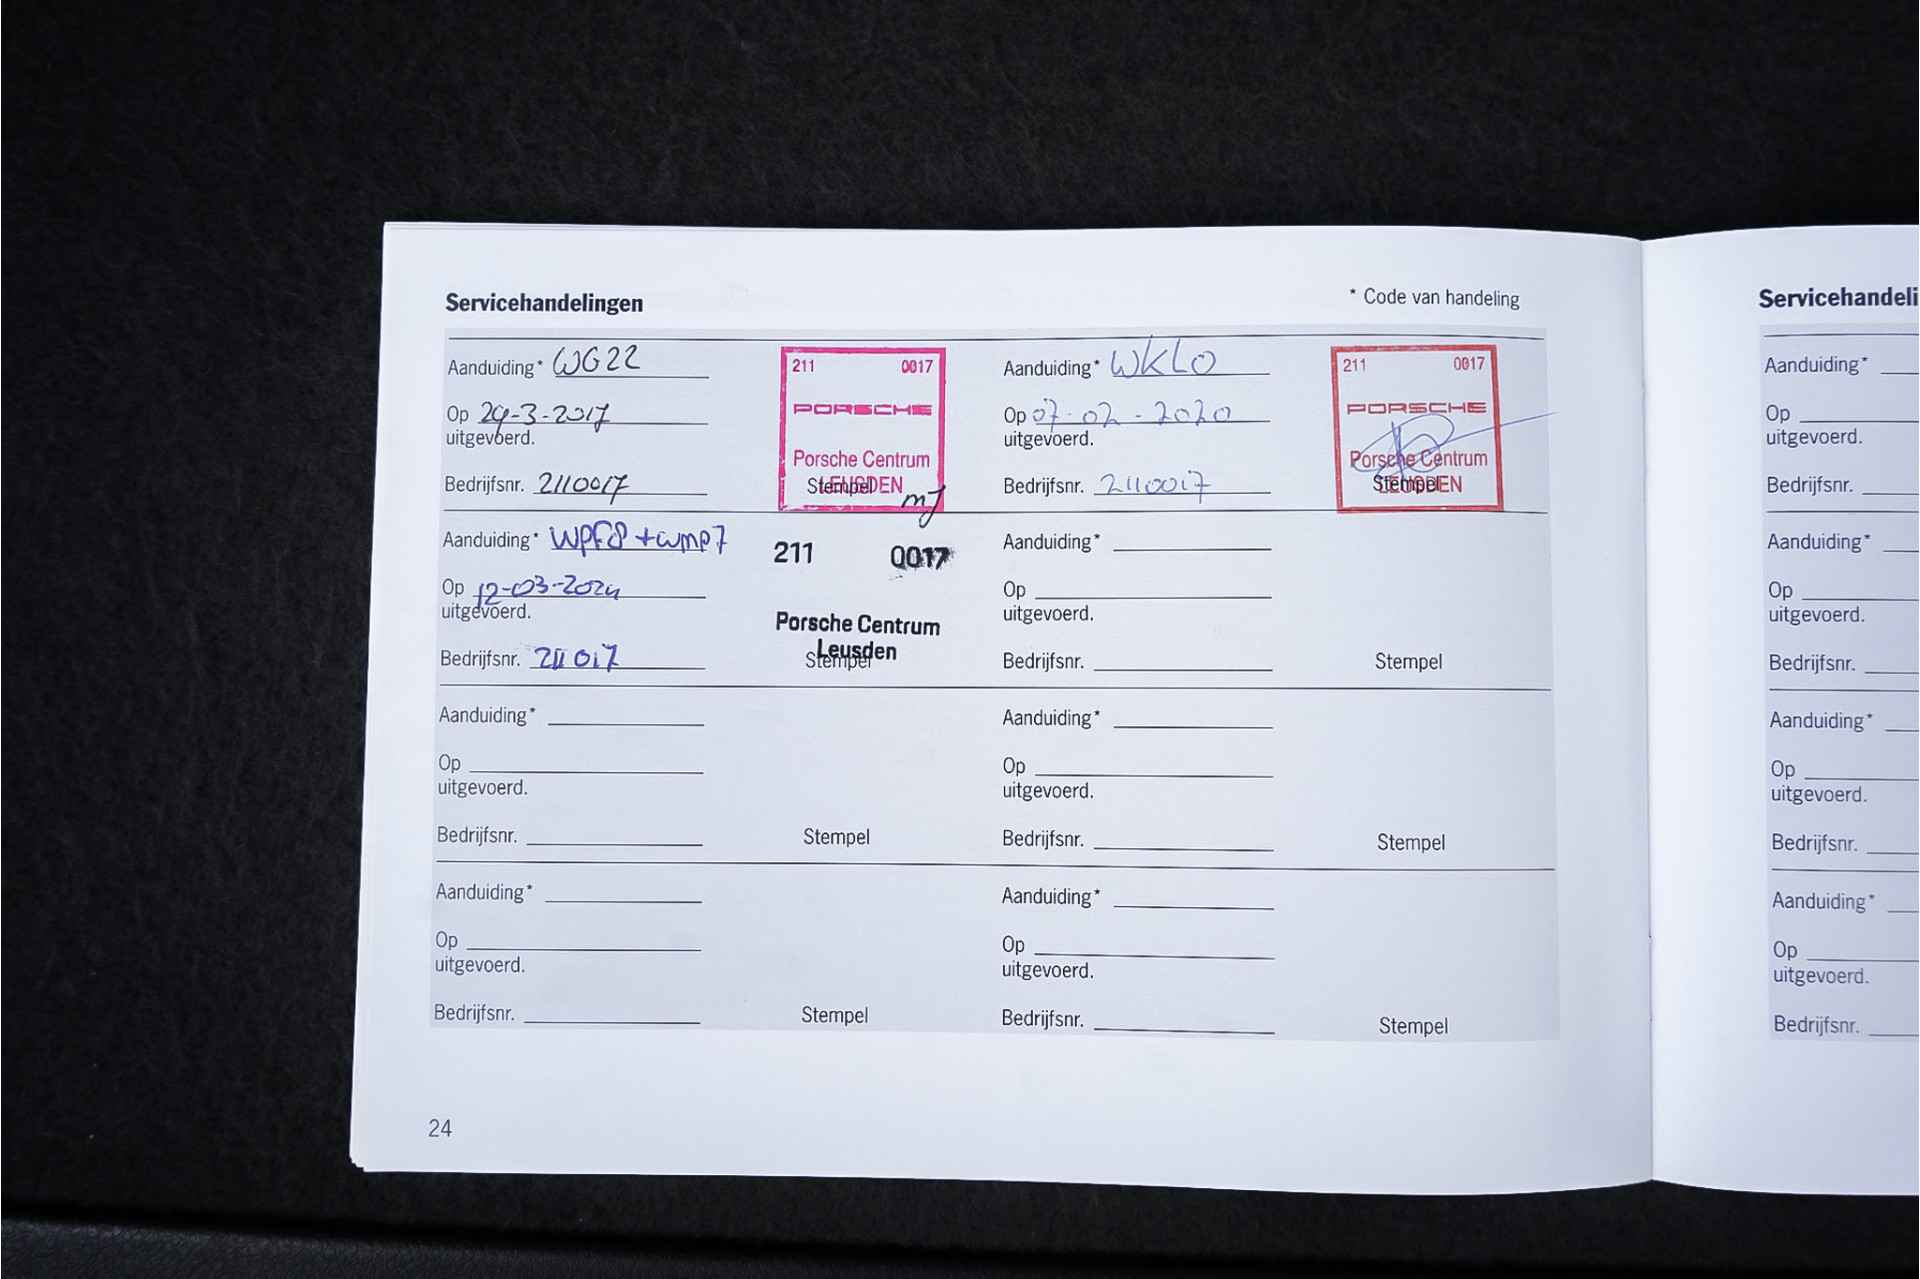 Servicehandelingen
* Code van handeling
Aanduiding* WG22
Op 29-3-2017
uitgevoerd.
Bedrijfsnr. 2110017
211 0017
PORSCHE
Porsche Centrum
LEUSDEN
Stempel
mJ
Aanduiding* WKL0
Op 07-02-2020
uitgevoerd.
Bedrijfsnr. 2110017
211 0017
PORSCHE
Porsche Centrum
LEUSDEN
Stempel
Aanduiding* WPF8 + WMP7
Op 12-03-2024
uitgevoerd.
Bedrijfsnr. 211 017
211 0017
Porsche Centrum
Leusden
Stempel
Aanduiding*
Op
uitgevoerd.
Bedrijfsnr.
Stempel
Aanduiding*
Op
uitgevoerd.
Bedrijfsnr.
Stempel
Aanduiding*
Op
uitgevoerd.
Bedrijfsnr.
Stempel
Aanduiding*
Op
uitgevoerd.
Bedrijfsnr.
Stempel
Aanduiding*
Op
uitgevoerd.
Bedrijfsnr.
Stempel
24
Servicehandeli
Aanduiding*
Op
uitgevoerd.
Bedrijfsnr.
Aanduiding*
Op
uitgevoerd.
Bedrijfsnr.
Aanduiding*
Op
uitgevoerd.
Bedrijfsnr.
Aanduiding*
Op
uitgevoerd.
Bedrijfsnr.